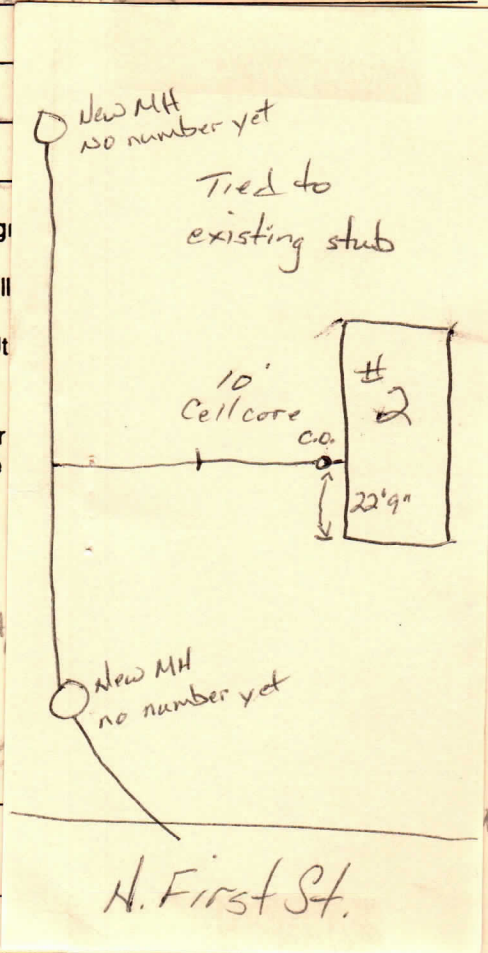 New MH
No number yet
Tied to
existing stub
10'
Cellcore
C.O.
#
2
22'9"
New MH
no number yet
N. First St.